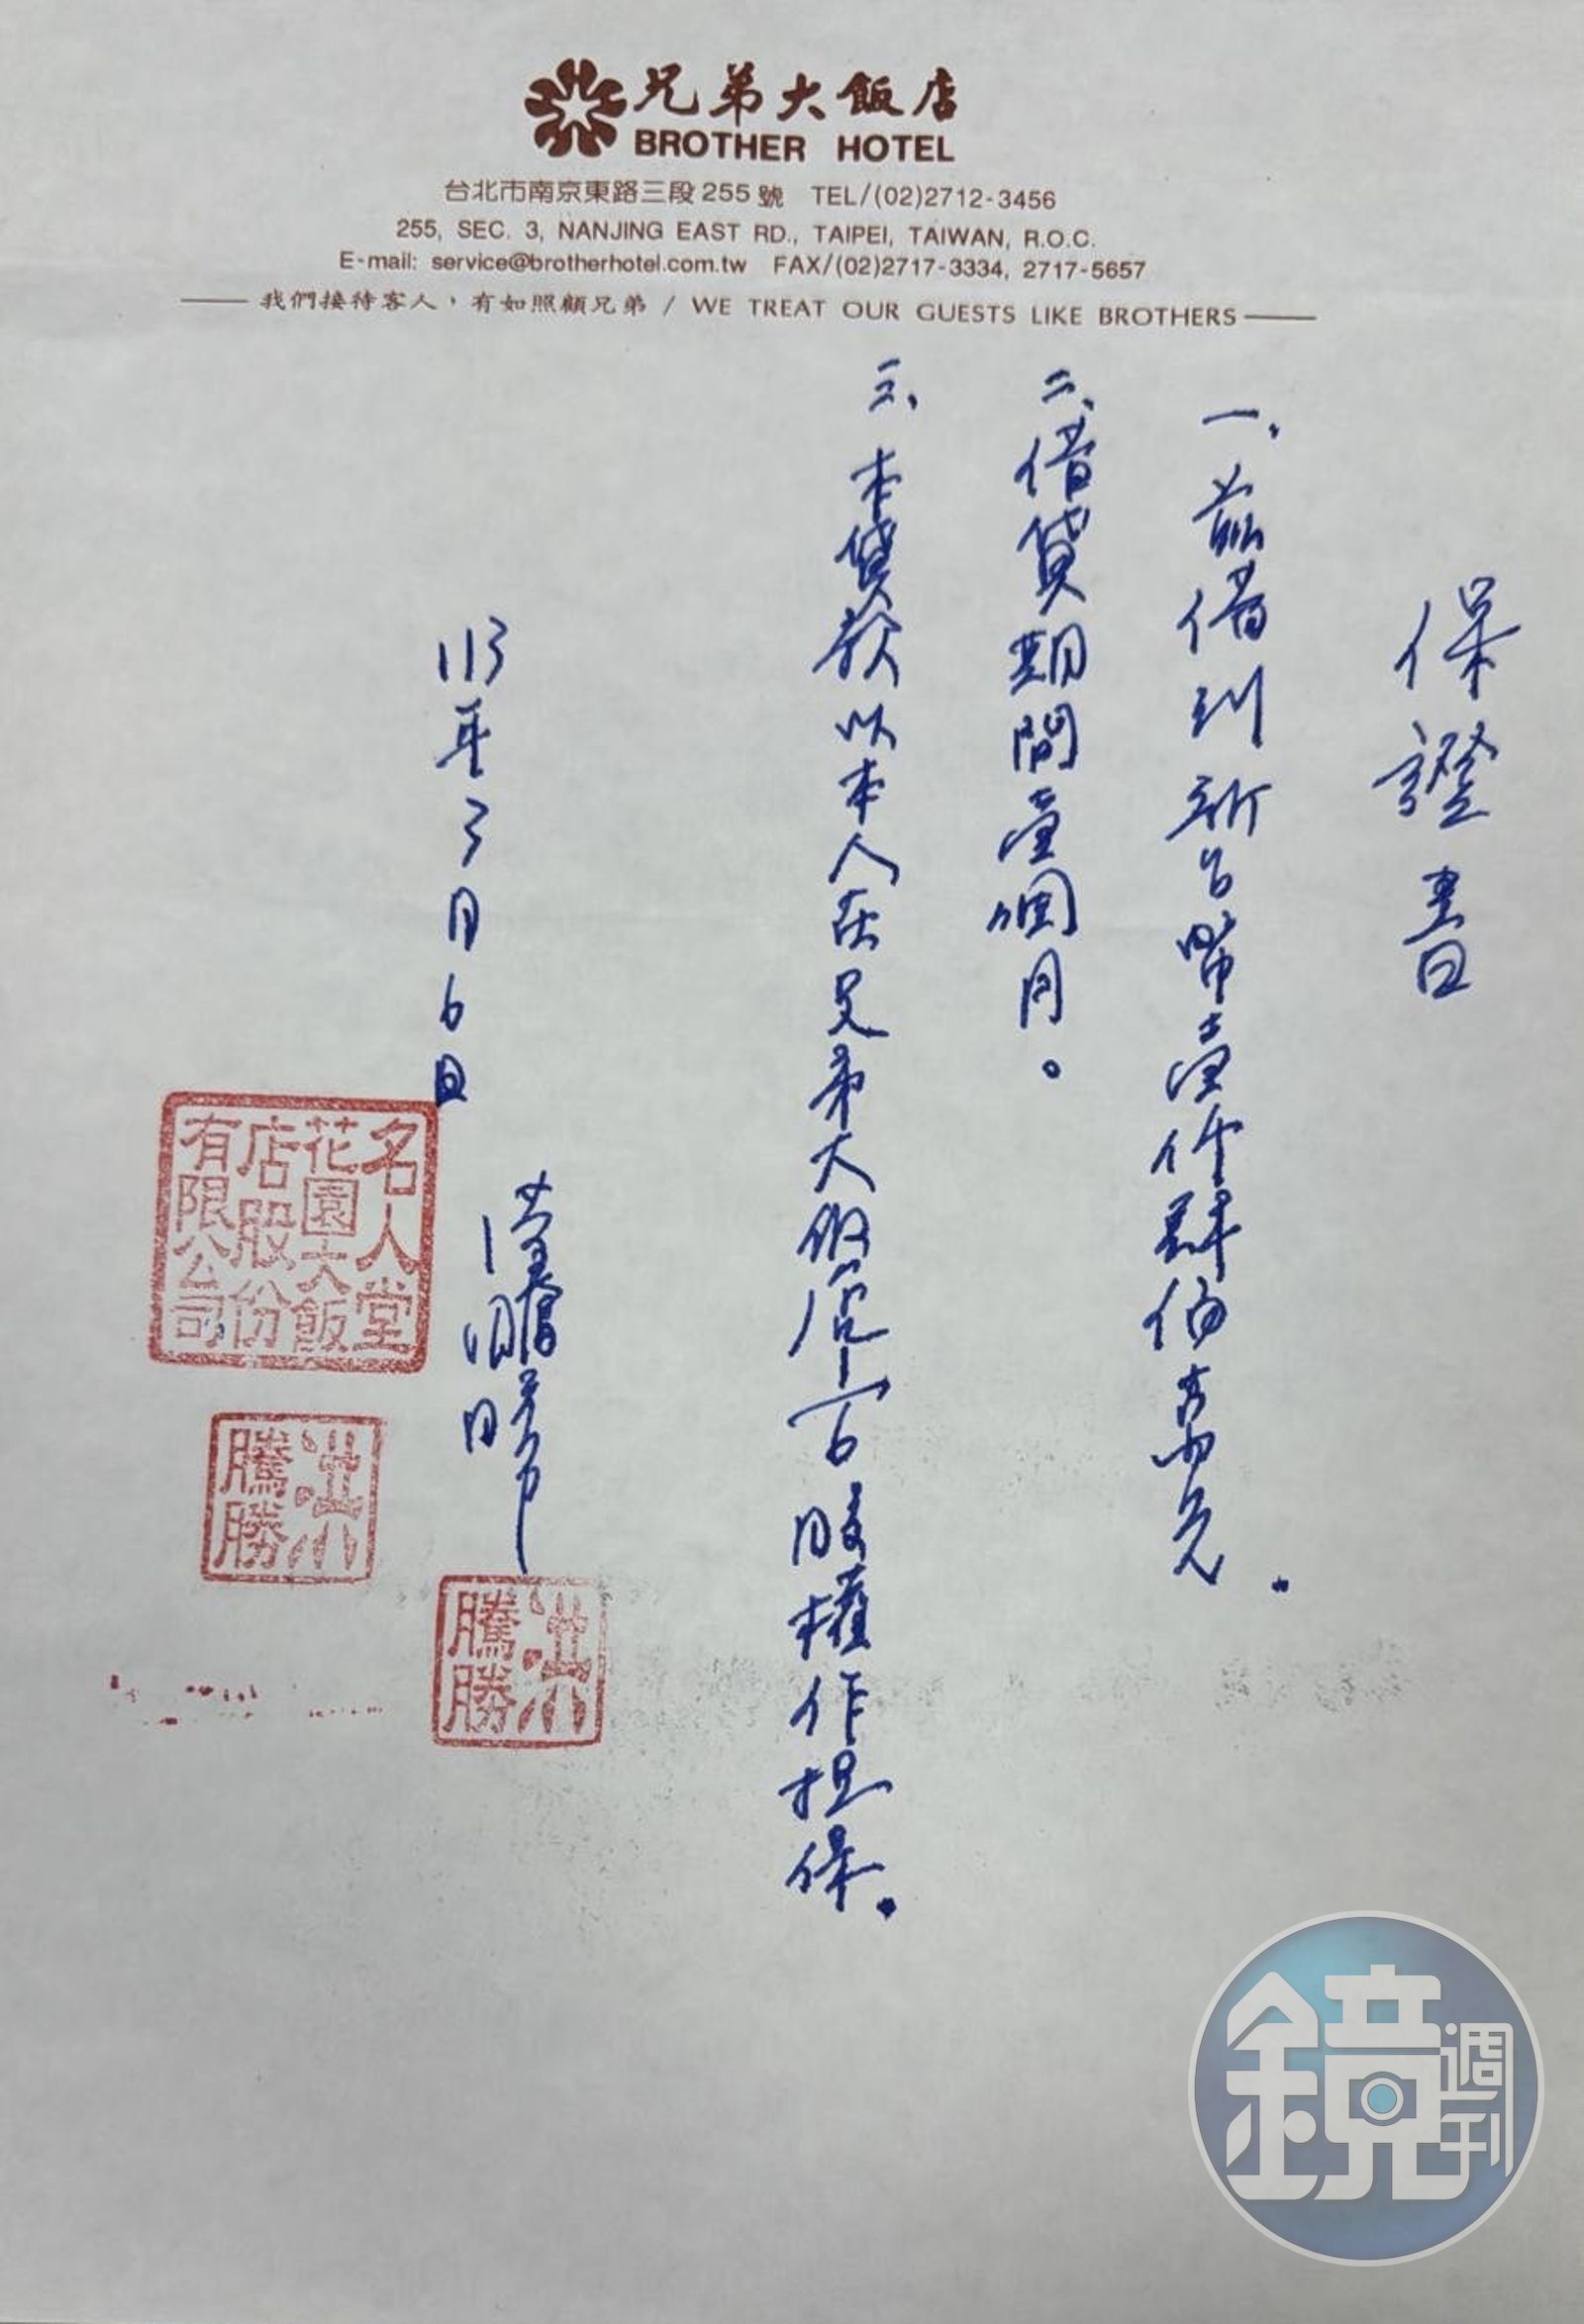 兄弟大飯店
BROTHER HOTEL
台北市南京東路三段255號 TEL/(02)2712-3456
255, SEC. 3, NANJING EAST RD., TAIPEI, TAIWAN, R.O.C.
E-mail: service@brotherhotel.com.tw FAX/(02)2717-3334, 2717-5657
我們接待客人，有如照顧兄弟 / WE TREAT OUR GUESTS LIKE BROTHERS
保證書
一、借到新台幣壹仟肆佰萬元.
二、借貸期間壹個月。
三、本貸款以本人在兄弟大飯店股權作担保.
113年3月6日
洪騰勝
洪騰勝
名人堂花園大飯店股份有限公司
洪騰勝
鏡週刊